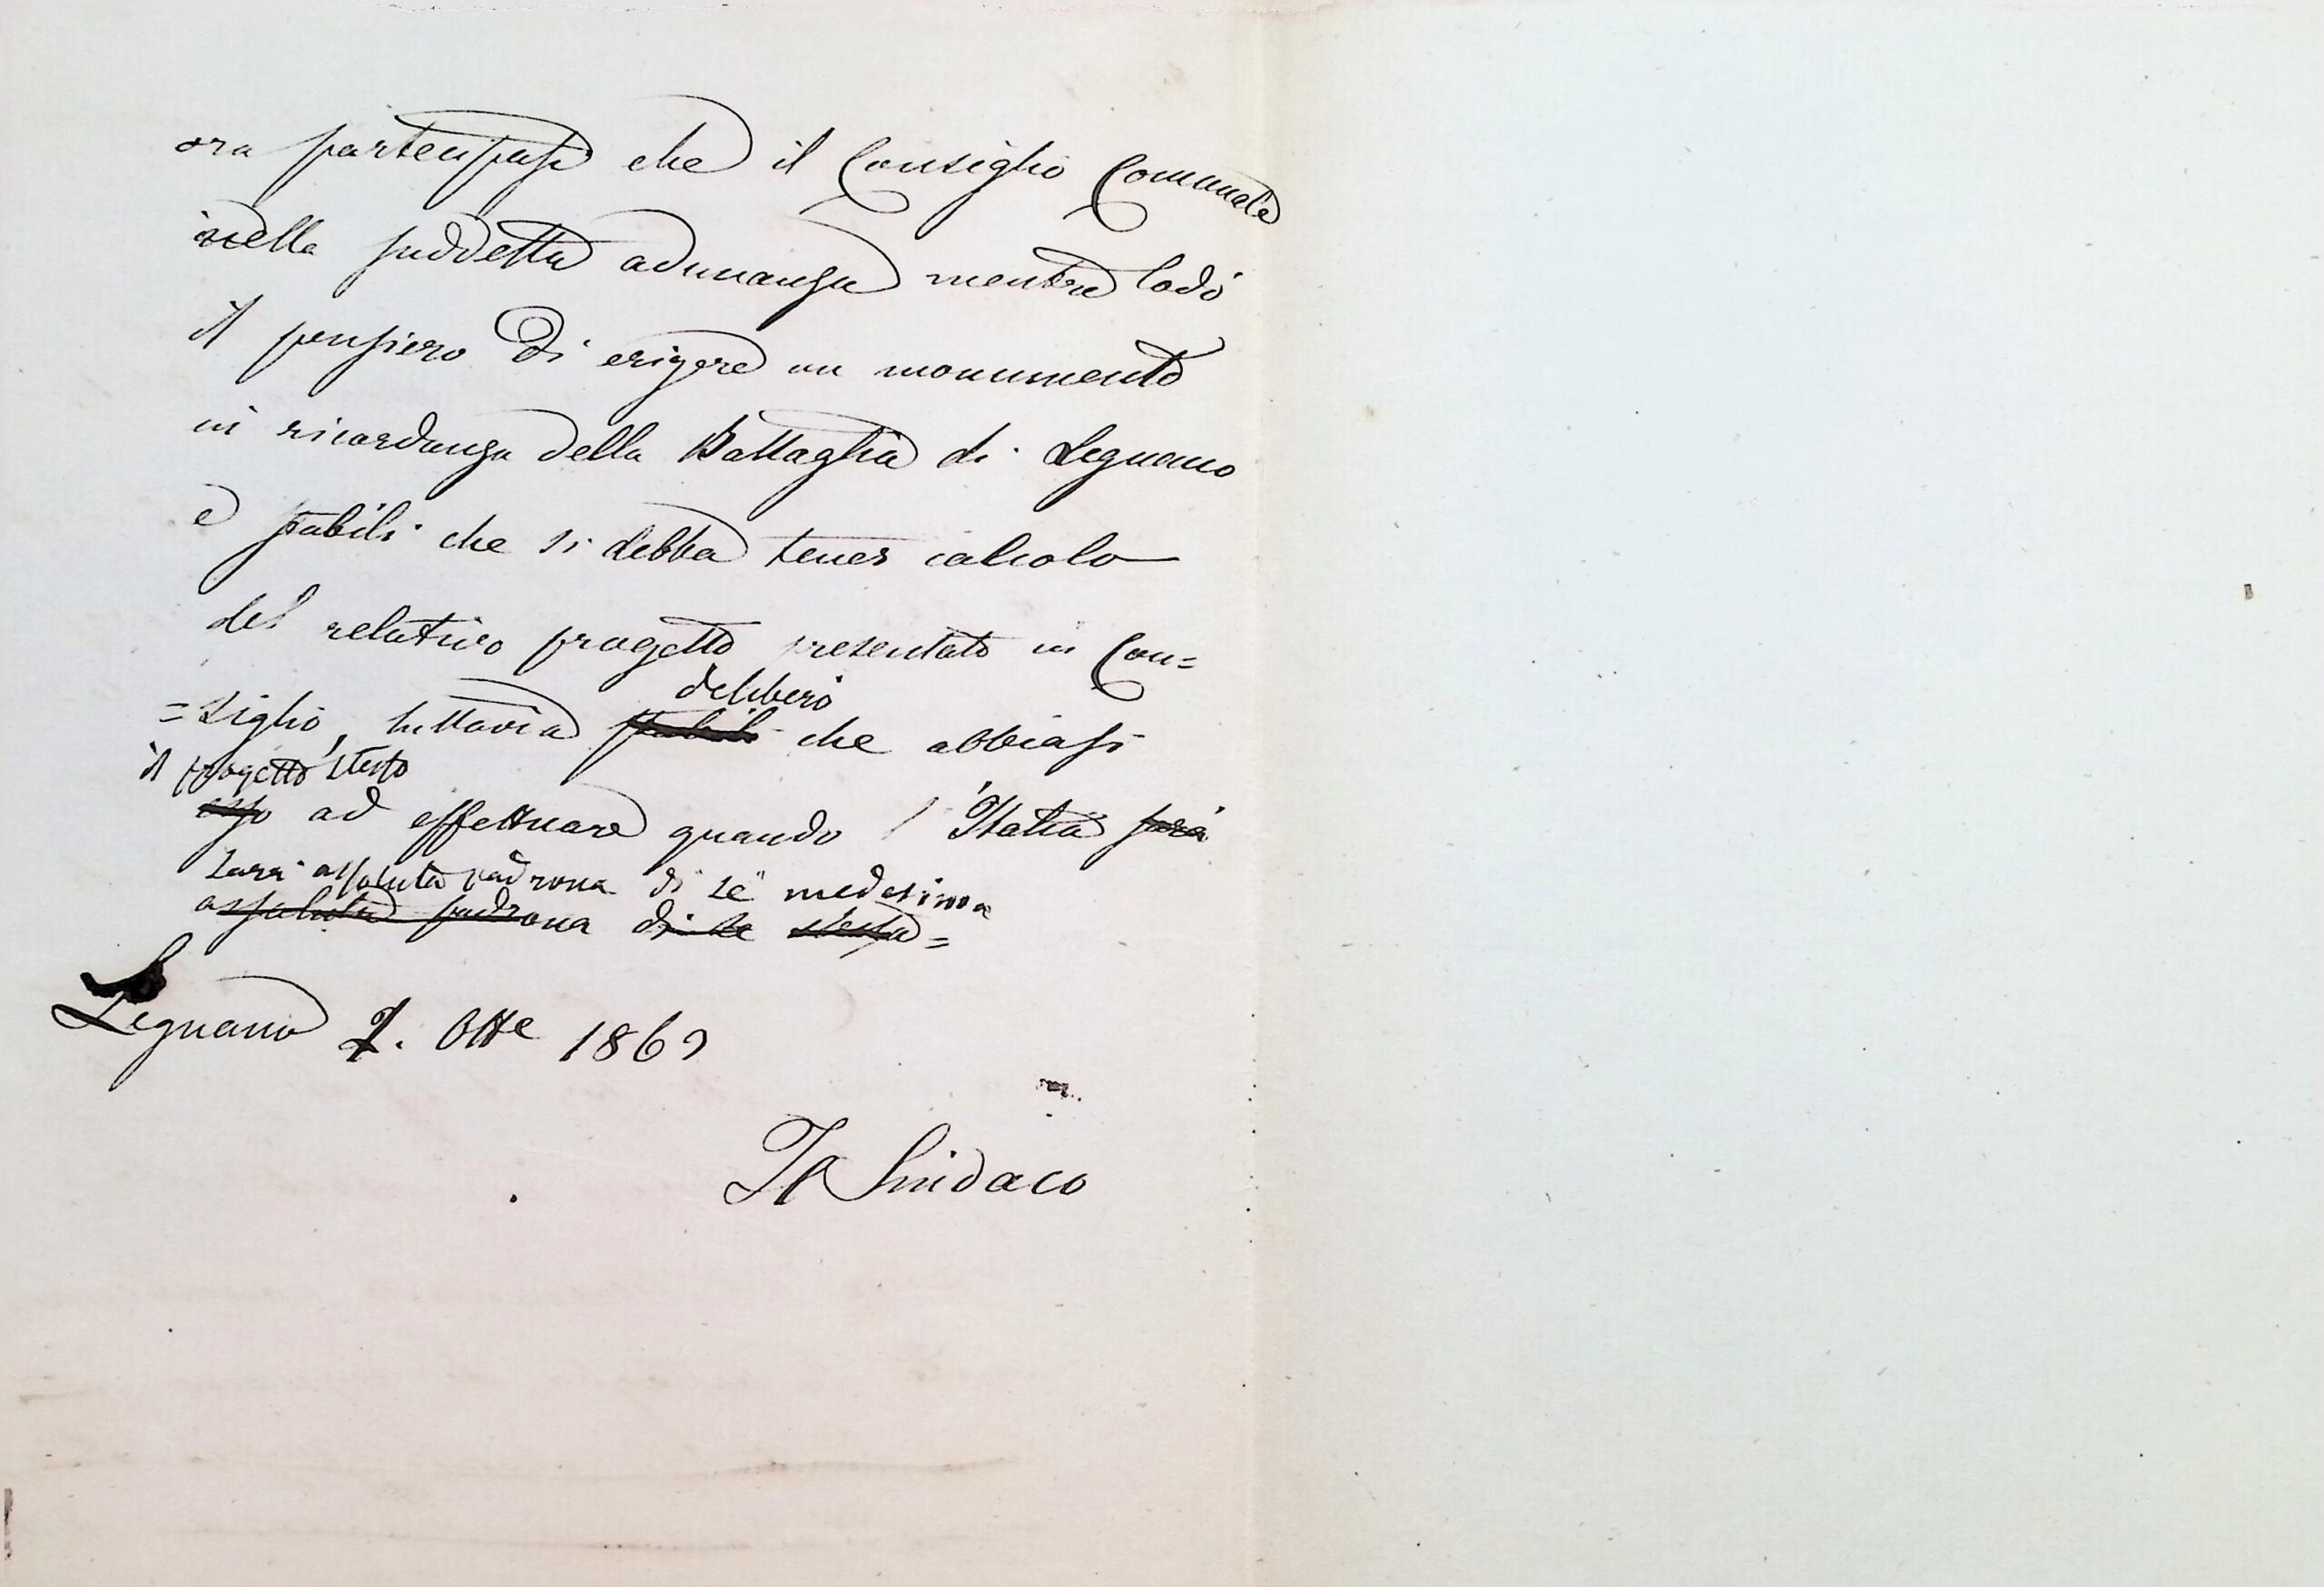 ora partecipasi che il Consiglio Comunale
nella suddetta adunanza mentre lodò
il pensiero di erigere un monumento
in ricordanza della Battaglia di Legnano
e stabilì che si debba tener calcolo
del relativo progetto presentato in Con=
deliberò
=siglio, tuttavia stabilì che abbiasi
il progetto stesso
esso ad effettuare quando l'Italia sarà
sarà assoluta padrona di sè medesima
assoluta padrona di se stessa=
Legnano 2. Otte 1869
Il Sindaco